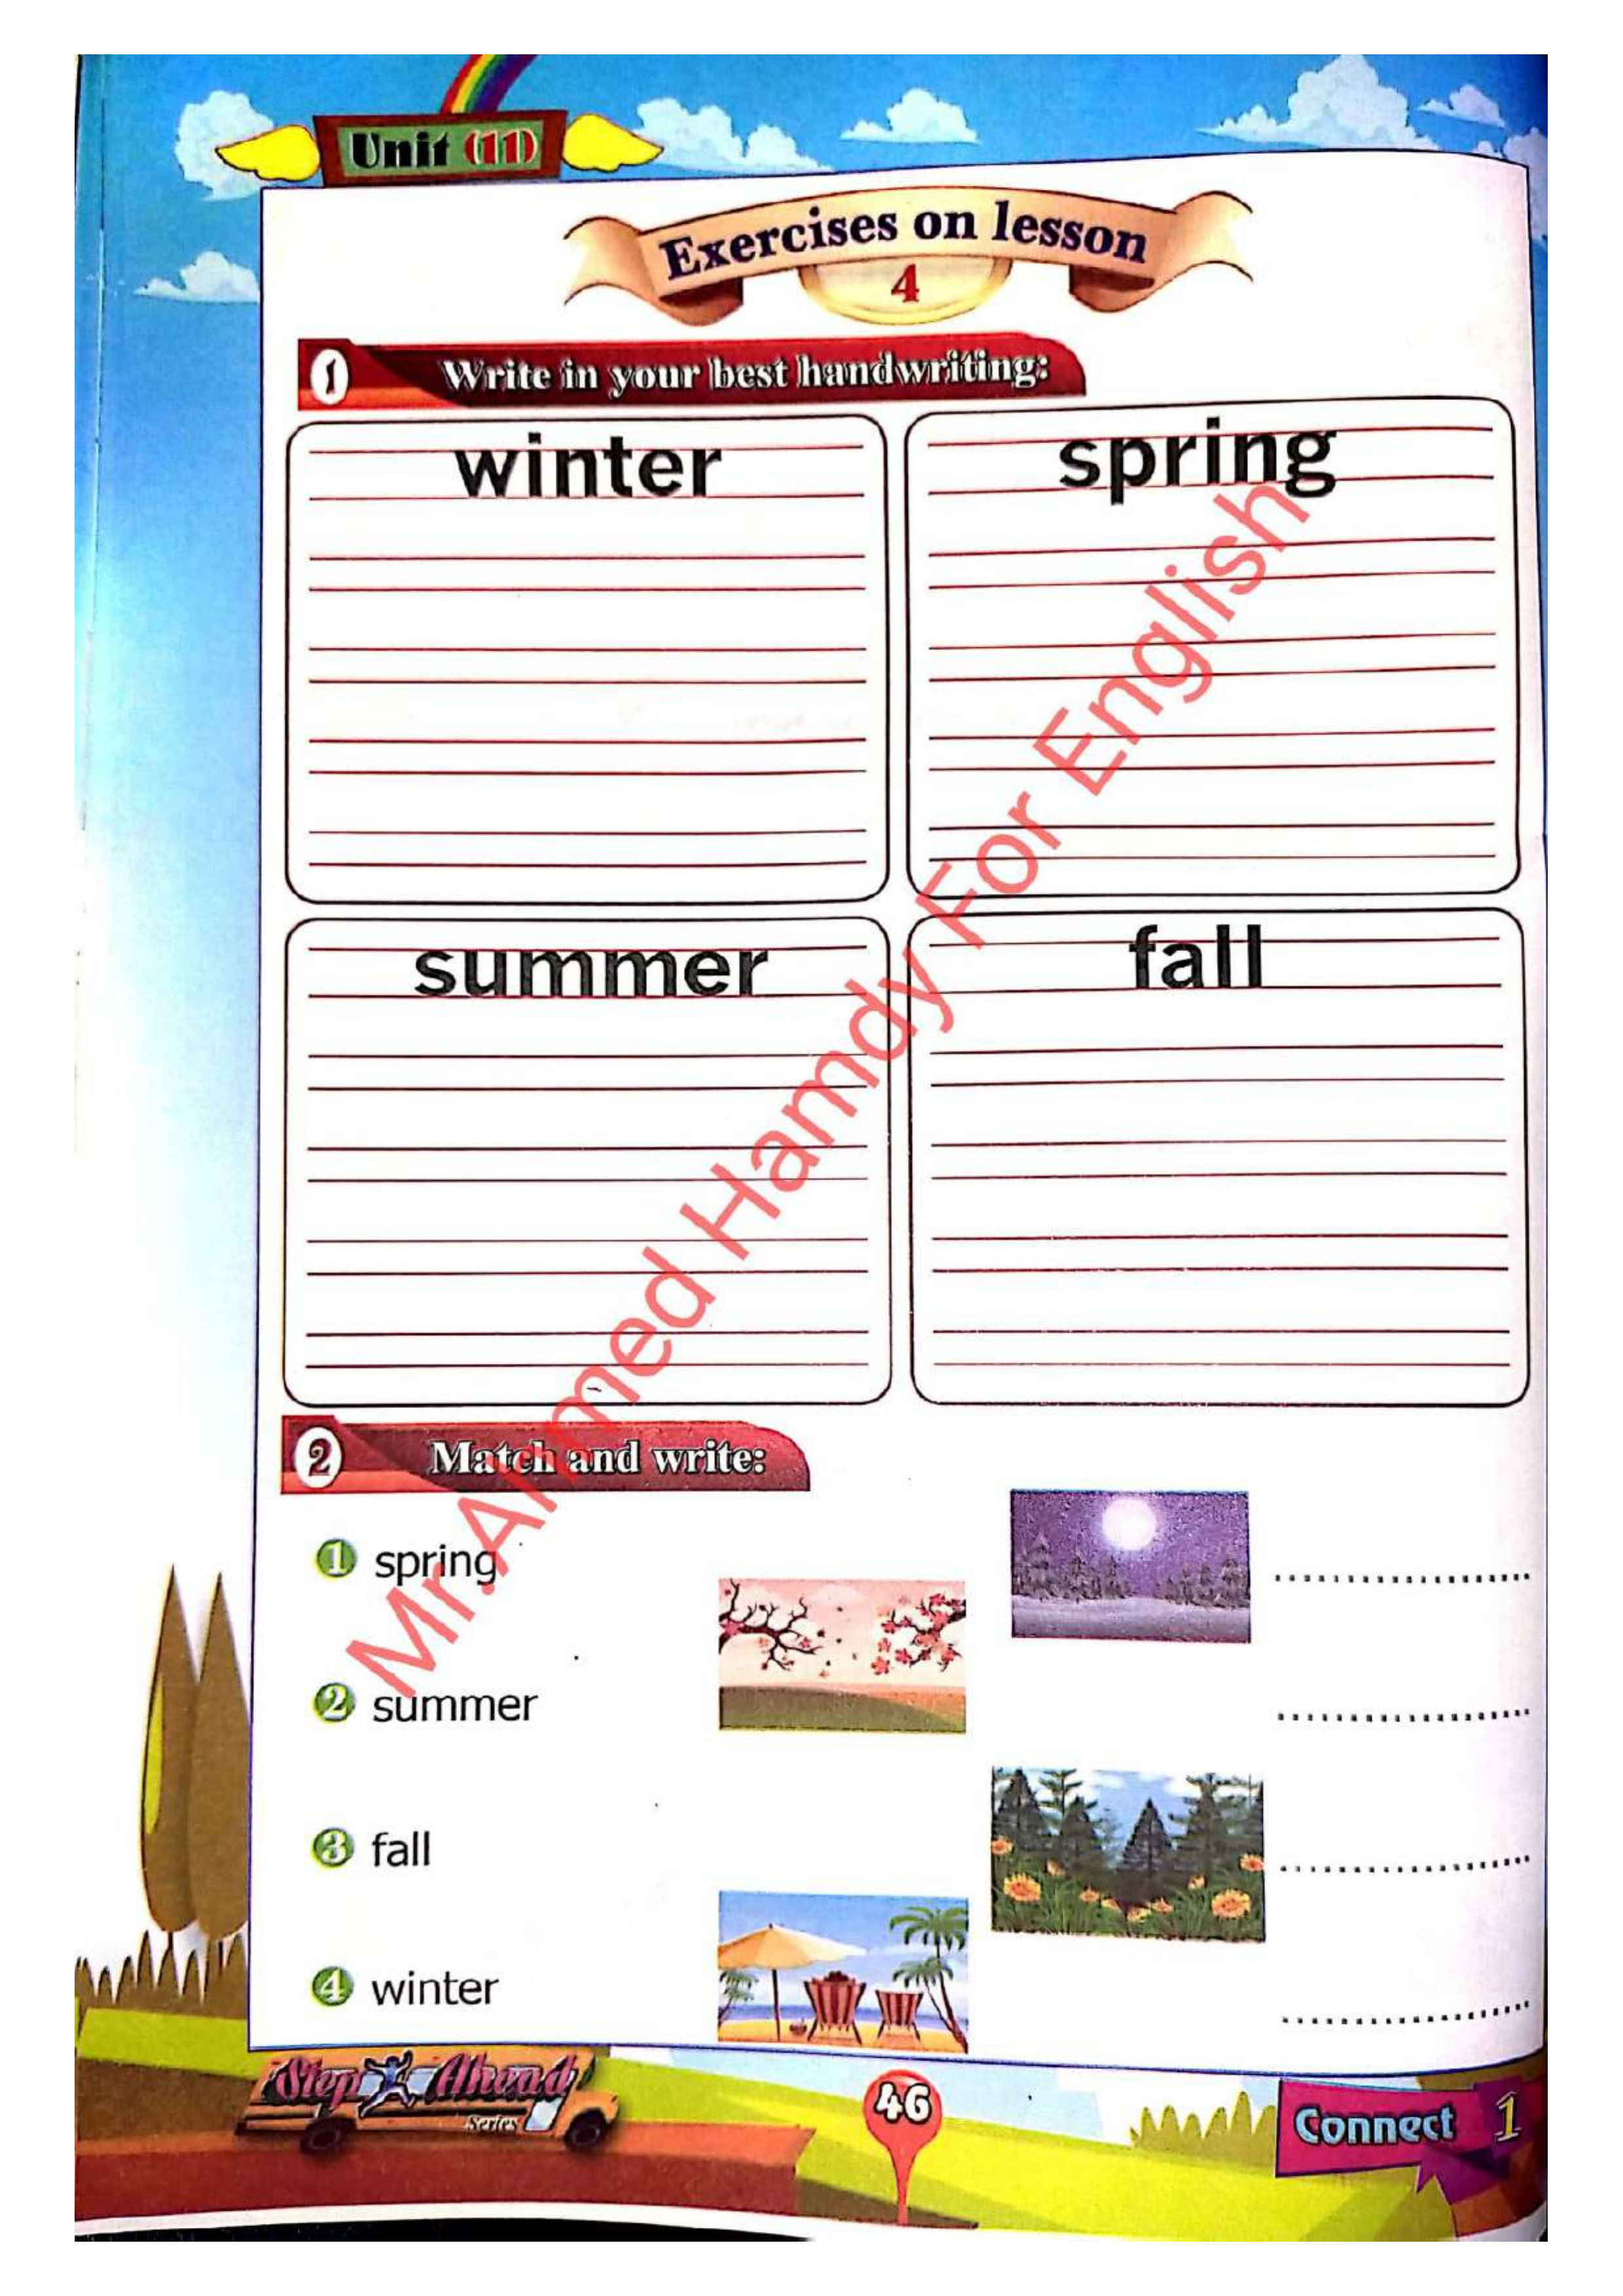 Unit (11)
Exercises on lesson
4
1 Write in your best handwriting:
winter
spring
summer
fall
2 Match and write:
1 spring
2 summer
3 fall
4 winter
Mr.Ahmed Hamdy For English
Step Ahead
Series
46
Connect 1